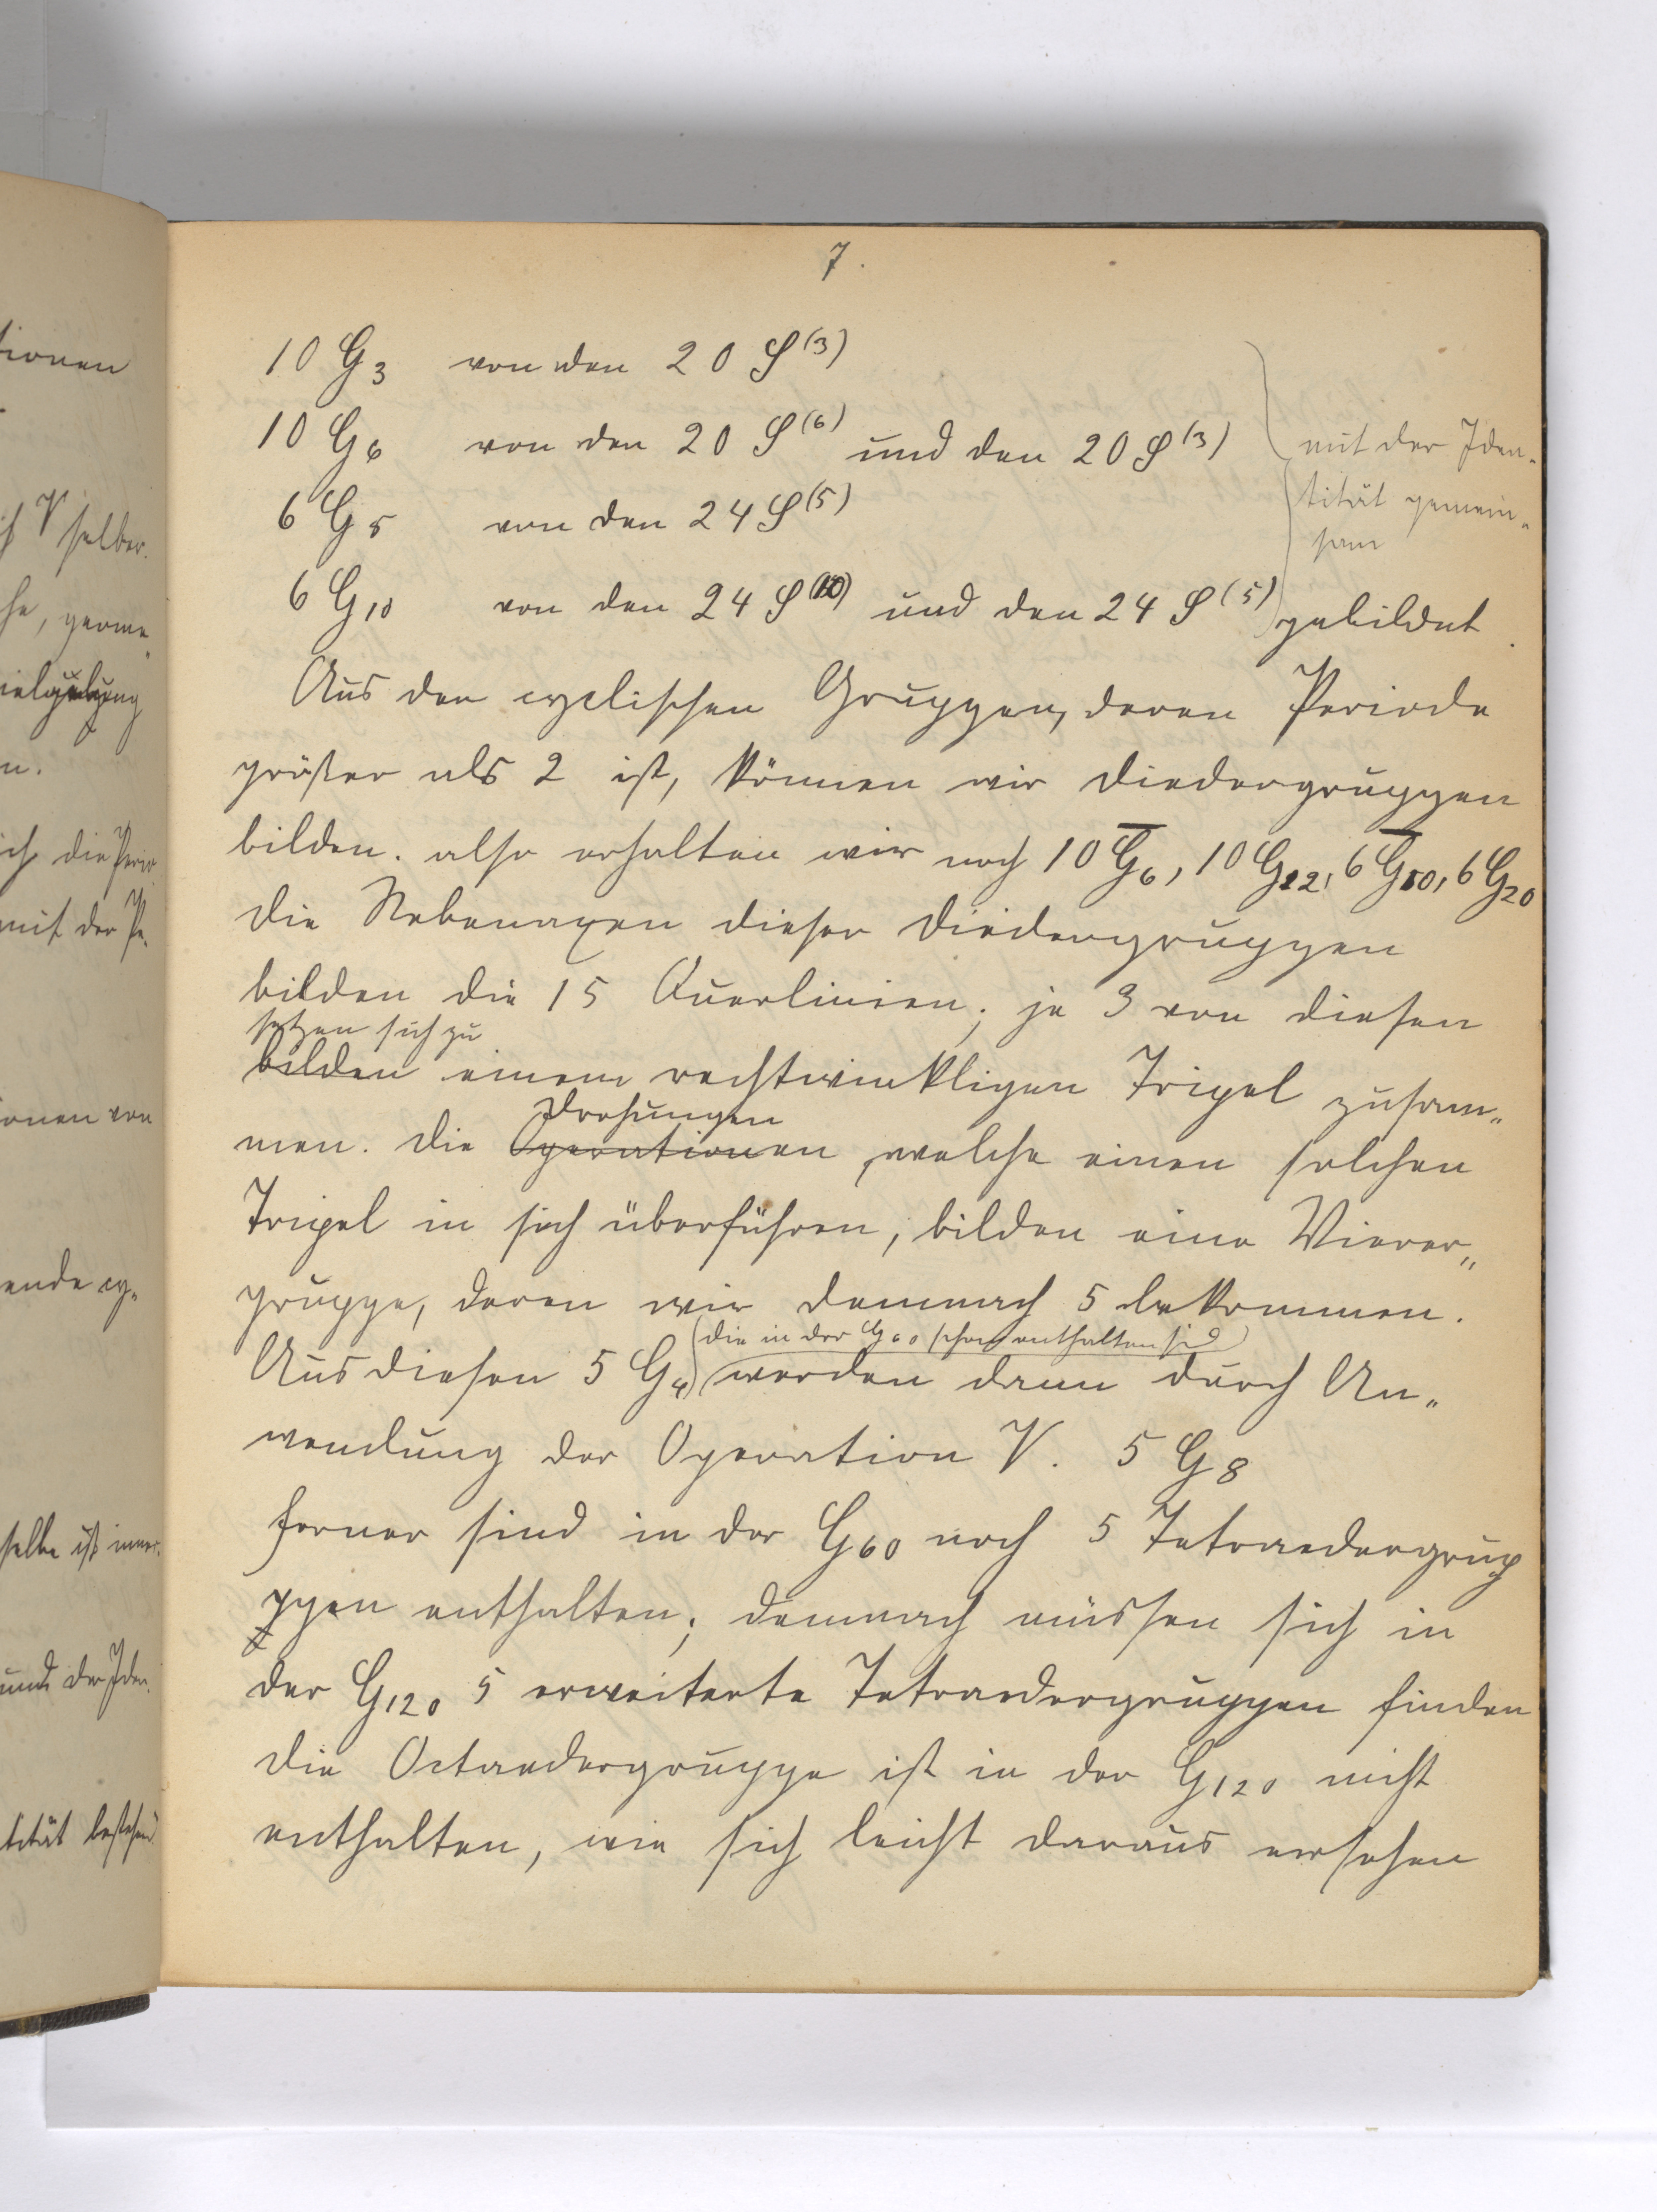 7.
10 G₃ von den 20 S⁽³⁾
10 G₆ von den 20 S⁽⁶⁾ und den 20 S⁽³⁾
mit der Iden-
tität gemein-
sam
6 G₅ von den 24 S⁽⁵⁾
6 G₁₀ von den 24 S⁽¹⁰⁾ und den 24 S⁽⁵⁾ gebildet.
Aus den cyclischen Gruppen, deren Periode
größer als 2 ist, können wir Diedergruppen
bilden. also erhalten wir noch 10 G̅₆, 10 G₁₂, 6 G̅₁₀, 6 G₂₀
Die Nebenaxen dieser Diedergruppen
bilden die 15 Querlinien; je 3 von diesen
setzen sich zu
bilden einem rechtwinkligen Tripel zusam-
Drehungen
men. Die Operationen, welche einen solchen
Tripel in sich überführen, bilden eine Vierer-
gruppe, deren wir demnach 5 bekommen.
(die in der G₆₀ schon enthalten sind)
Aus diesen 5 G₄ werden dann durch An-
wendung der Operation V. 5 G₈
Ferner sind in der G₆₀ noch 5 Tetraedergrup
ppen enthalten; demnach müssen sich in
der G₁₂₀ 5 erweiterte Tetraedergruppen finden
Die Octaedergruppe ist in der G₁₂₀ nicht
enthalten, wie sich leicht daraus ersehen
tionen
V selber.
he, geome-
n.
ich die Perio
mit der Pe-
ionen von
ende cy-
selbe ist immer
und der Iden-
tität bestehend